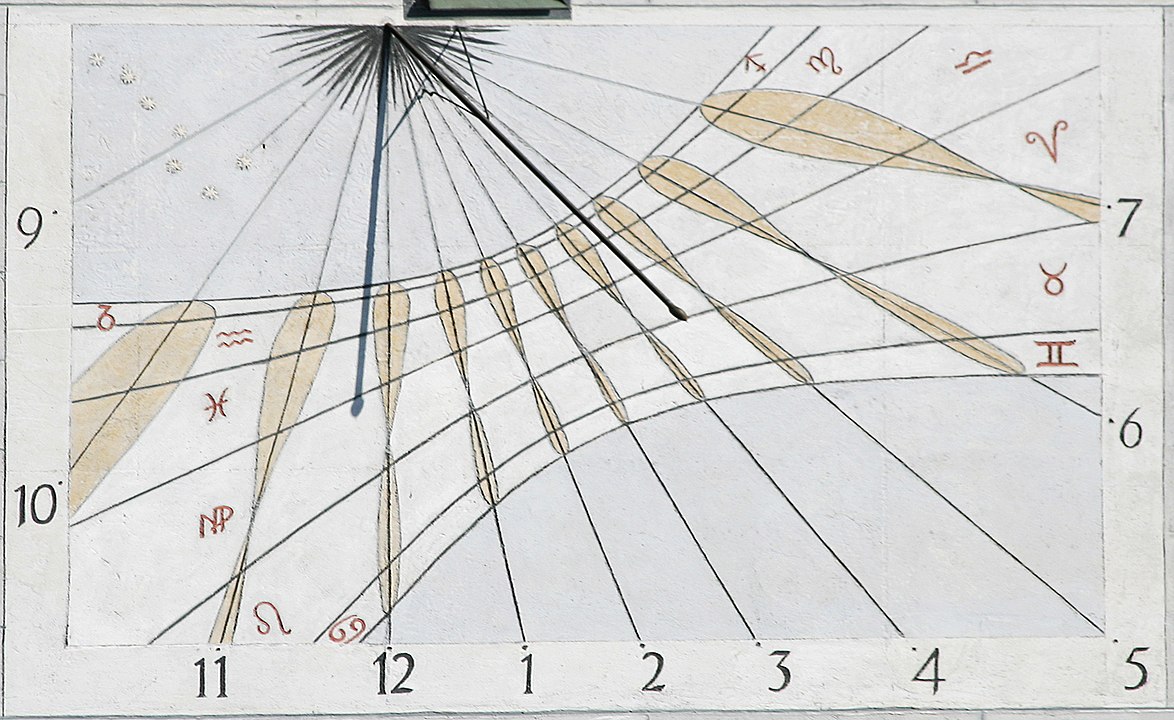 ♐ ♏ ♎
♈
9 7
♉
♑ ♒ ♊
♓
6
10
♍
♌ ♋
11 12 1 2 3 4 5